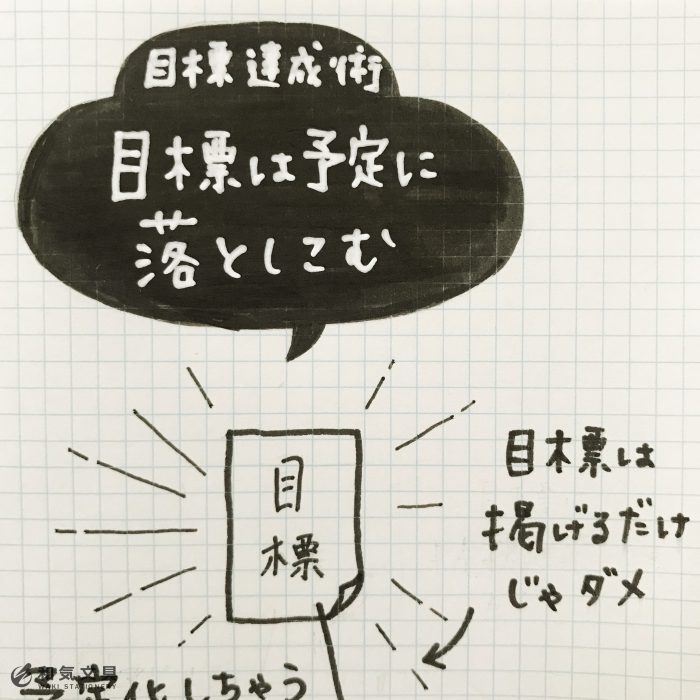 目標達成術
目標は予定に
落としこむ
目
標
目標は
掲げるだけ
じゃダメ
予定化しちゃう
和気文具
WAKI STATIONERY